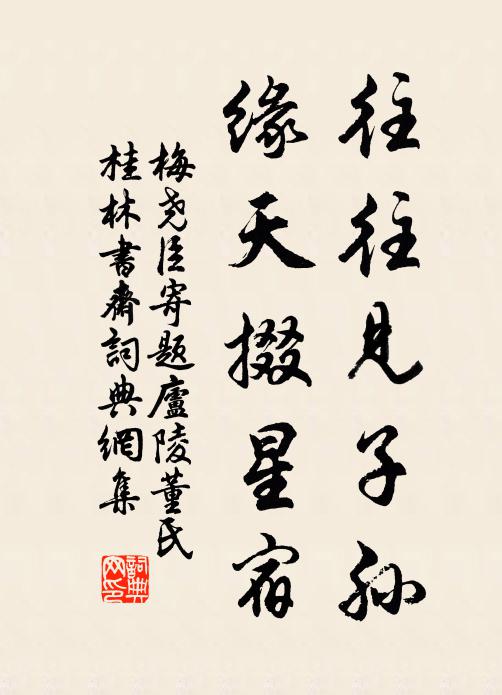 往往见子孙
缘天掇星宿
梅尧臣寄题廬陵董氏
桂林書齋詞典網集
詞典
网印